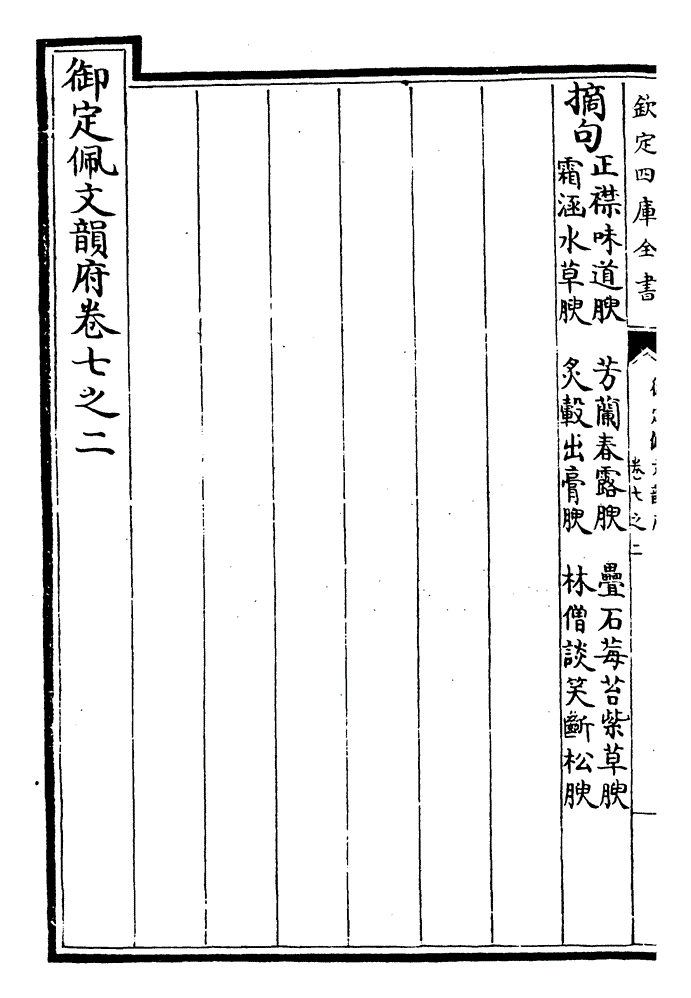 欽定四庫全書
御定佩文韻府
卷七之二
摘句
正襟味道腴 芳蘭春露腴 疊石莓苔紫草腴
霜涵水草腴 炙轂出膏腴 林僧談笑斷松腴
御定佩文韻府卷七之二